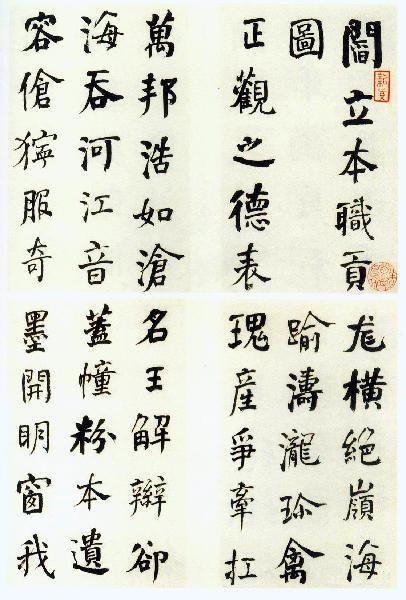 閻立本職貢
圖
正觀之德表
萬邦浩如滄
海吞河江音
容傖獰服奇
尨橫絕嶺海
踰濤瀧珎禽
瑰產爭牽扛
名王解辮卻
蓋幢粉本遺
墨開明窗我